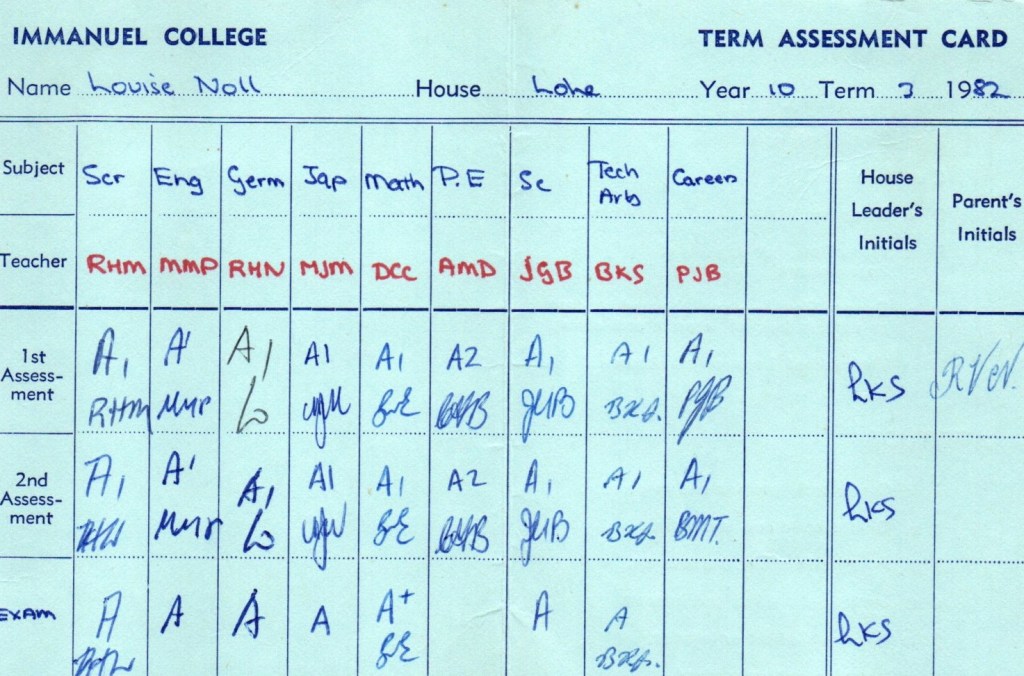 IMMANUEL COLLEGE TERM ASSESSMENT CARD
Name Louise Noll House Lohe Year 10 Term 3 1982
Subject Scr Eng Germ Jap Math P.E Sc Tech Arts Careers House Leader's Initials Parent's Initials
Teacher RHM MMP RHN MJM DCC AMD JGB BKS PJB
1st Assess- ment A1 A1 A1 A1 A1 A2 A1 A1 A1
RHM MMP PJB hKS
2nd Assess- ment A1 A1 A1 A1 A1 A2 A1 A1 A1
MMP BMT. hKS
EXAM A A A A A+ A A
hKS